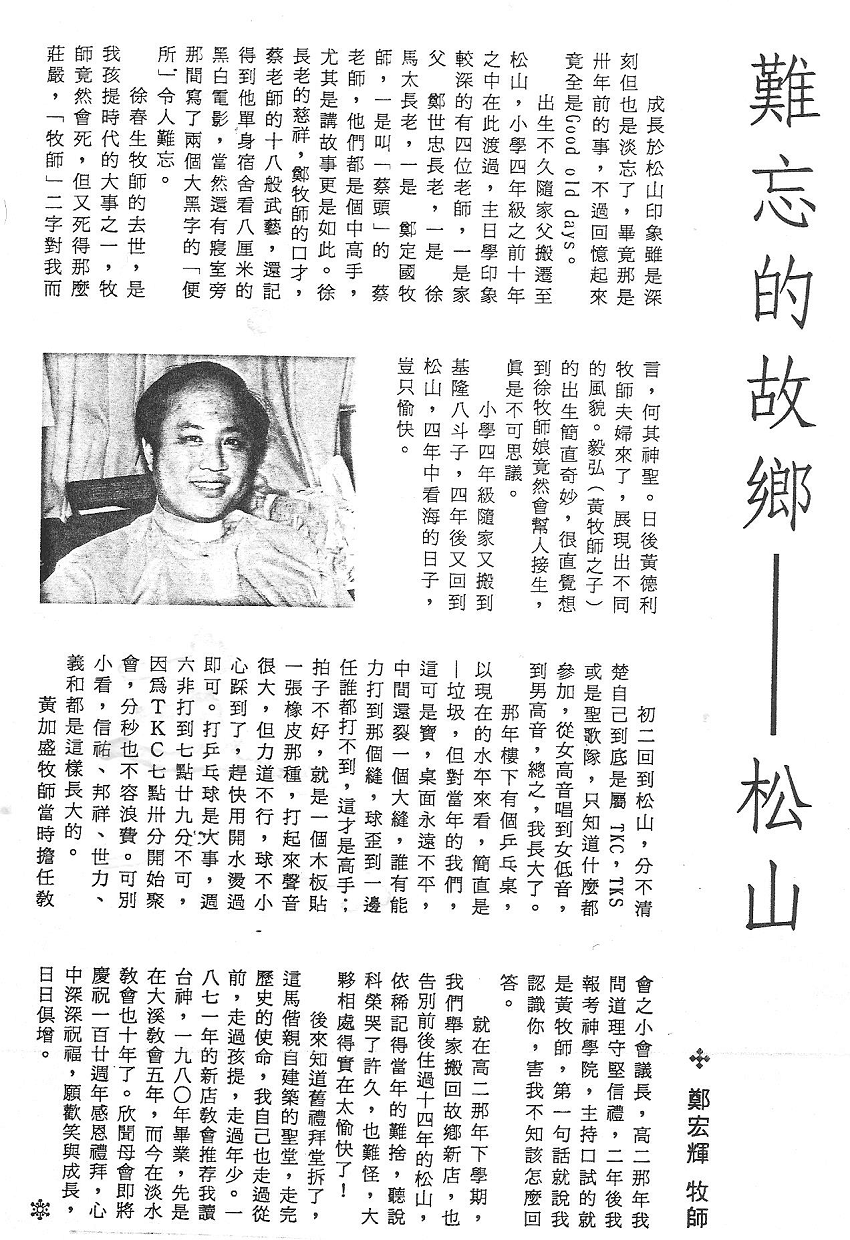 難忘的故鄉——松山
鄭宏輝 牧師
成長於松山印象雖是深
刻但也是淡忘了，畢竟那是
卅年前的事，不過回憶起來
竟全是Good old days。
出生不久隨家父搬遷至
松山，小學四年級之前十年
之中在此渡過，主日學印象
較深的有四位老師，一是家
父 鄭世忠長老，一是 徐
馬太長老，一是 鄭定國牧
師，一是叫「蔡頭」的 蔡
老師，他們都是個中高手，
尤其是講故事更是如此。徐
長老的慈祥，鄭牧師的口才，
蔡老師的十八般武藝，還記
得到他單身宿舍看八厘米的
黑白電影，當然還有寢室旁
那間寫了兩個大黑字的「便
所」令人難忘。
徐春生牧師的去世，是
我孩提時代的大事之一，牧
師竟然會死，但又死得那麼
莊嚴，「牧師」二字對我而
言，何其神聖。日後黃德利
牧師夫婦來了，展現出不同
的風貌。毅弘（黃牧師之子）
的出生簡直奇妙，很直覺想
到徐牧師娘竟然會幫人接生，
眞是不可思議。
小學四年級隨家又搬到
基隆八斗子，四年後又回到
松山，四年中看海的日子，
豈只愉快。
初二回到松山，分不清
楚自己到底是屬 TKC，TKS
或是聖歌隊，只知道什麼都
參加，從女高音唱到女低音，
到男高音，總之，我長大了。
那年樓下有個乒乓桌，
以現在的水卒來看，簡直是
—垃圾，但對當年的我們，
這可是寶，桌面永遠不平，
中間還裂一個大縫，誰有能
力打到那個縫，球歪到一邊
任誰都打不到，這才是高手；
拍子不好，就是一個木板貼
一張橡皮那種，打起來聲音
很大，但力道不行，球不小
心踩到了，趕快用開水燙過
即可。打乒乓球是大事，週
六非打到七點廿九分不可，
因爲TKC七點卅分開始聚
會，分秒也不容浪費。可別
小看，信祐、邦祥、世力、
義和都是這樣長大的。
黃加盛牧師當時擔任敎
會之小會議長，高二那年我
問道理守堅信禮，二年後我
報考神學院，主持口試的就
是黃牧師，第一句話就說我
認識你，害我不知該怎麼回
答。
就在高二那年下學期，
我們舉家搬回故鄉新店，也
告別前後住過十四年的松山，
依稀記得當年的難捨，聽說
科榮哭了許久，也難怪，大
夥相處得實在太愉快了！
後來知道舊禮拜堂拆了，
這馬偕親自建築的聖堂，走完
歷史的使命，我自己也走過從
前，走過孩提，走過年少。一
八七一年的新店敎會推荐我讀
台神，一九八〇年畢業，先是
在大溪敎會五年，而今在淡水
敎會也十年了。欣聞母會即將
慶祝一百廿週年感恩禮拜，心
中深深祝福，願歡笑與成長，
日日俱增。